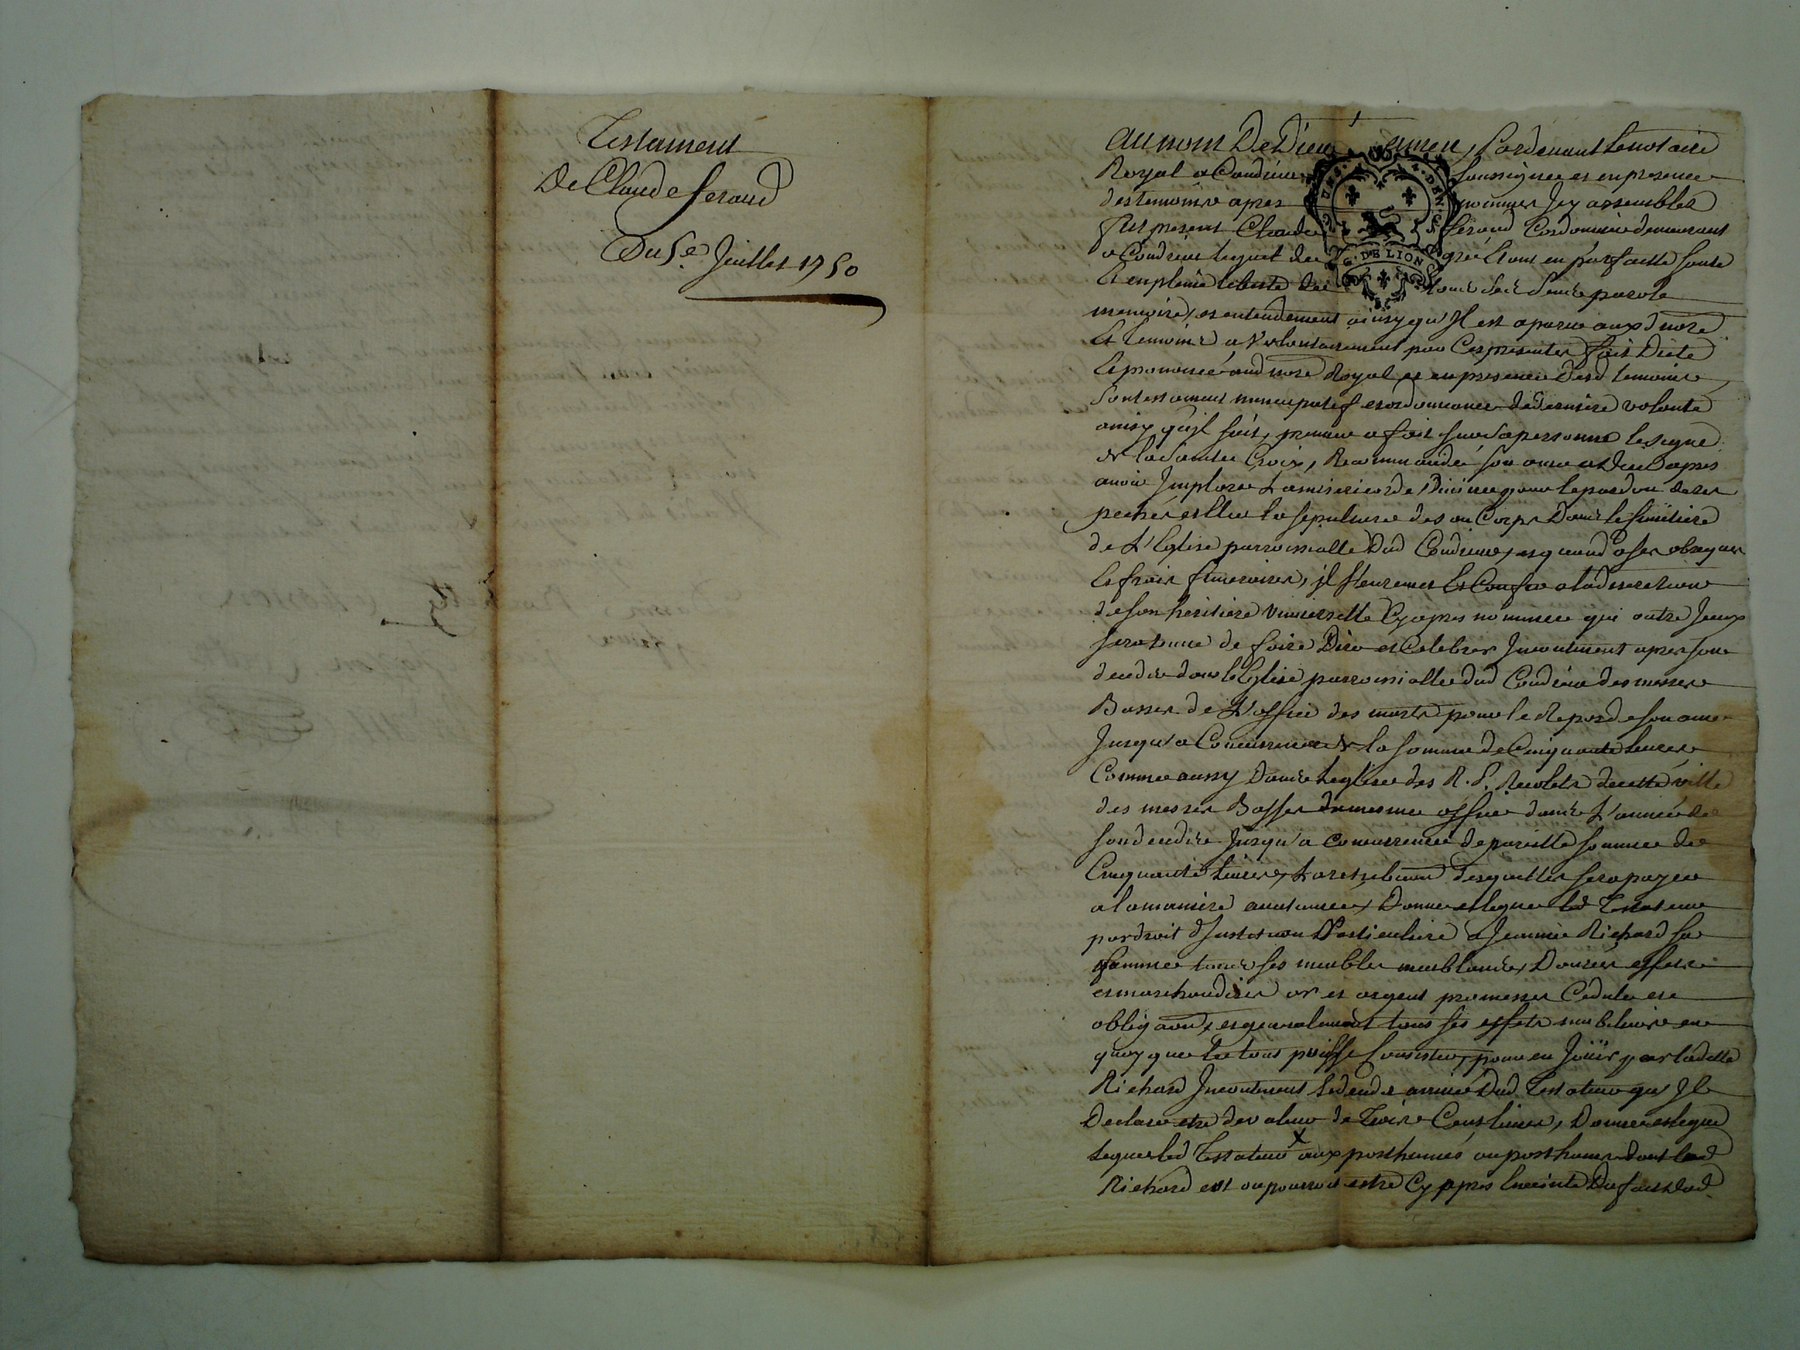 Testament
De Claude Feraud
Du 5e Juillet 1750
Au nom De Dieu amen, Pardevant le notaire
Royal a Condrieu soussigné et en presence
des temoins apres nommes Jcy assemblés
fut present Claude feraud Cordonnier demeurant
a Condrieu lequel de gré Etant en parfaitte santé
Et en pleine liberté de tous ses sens parole
memoire, et entendement ainsy qu'Jl est aparu aux d nore
Et temoins a Volontairement par Ces presentes fait Dicté
Et prononcé aud nore Royal et en presence Desd temoins
Son testament nuncupatif et ordonnance de derniere volonté
ainsy qu'jl suit, premier a fait sur sa personne le signe
de la Sainte Croix, Recommandé son ame a Dieu apres
avoir Jmploré La misericorde Divine pour le pardon de ses
pechés Eslu la sepulture de son Corps Dans le simitiere
de L'Eglise parroissialle Dud Condrieu, et quand a ses obseques
Et frais funeraires, jl s'en remet Et Confie a la discretion
de son heritiere Universelle Cy apres nommée qui outre Jceux
sera tenue de faire Dire et Celebrer Jncontinent apres son
decedz dans l'Eglise parroissialle dud Condrieu des messes
Basses de L'office des morts pour le Repos de son ame
Jusqu'a Concurrence de la somme de Cinquante livres
Comme aussy Dans L'eglise des R. P. Recolets de cette ville
des messes Basses du mesme office dans L'année de
son decedz Jusqu'a concurrence de pareille somme de
Cinquante Livres, La retribution desquelles sera payée
a la maniere accoutumée, Donne et legue led Testateur
par droit d'Jnstitution Particuliere a Jeanne Richard sa
femme tous ses meubles meublants, Danrées effets
et marchandises or et argent promesses Cedules et
obligaons, et generalement tous ses effets mobiliaires en
quoy que le tout puisse Consister, pour en Jouir par ladette
Richard Jncontinent le decedz arrivé Dud Testateur qu'Jl
Declare etre de valeur de Trois Cens livres, Donne et legue
Legue led Testateur x aux posthumes ou posthumes dont lad
Richard est ou pourroit estre Cy apres Enceinte Du fait Dud